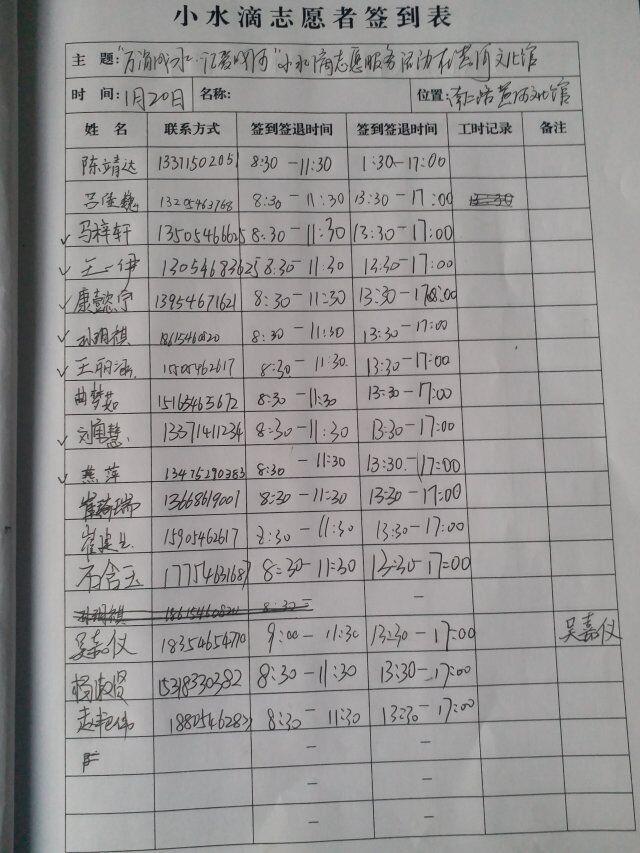 小水滴志愿者签到表
主 题: 小水滴志愿服务活动在黄河文化馆
时 间: 1月20日 名称: 位置: 黄河文化馆
姓 名 联系方式 签到签退时间 签到签退时间 工时记录 备注
陈靖达 13371502051 8:30 -11:30 1:30-17:00
13205463768 8:30 - 11:30 13:30 - 17:00
✓ 马梓轩 13505466625 8:30-11:30 13:30-17:00
✓ 王一伊 13054683625 8:30-11:30 13:30-17:00
✓ 康懿宁 13954671621 8:30-11:30 13:30-17:00
✓ 孙玥祺 8:30 - 11:30 13:30-17:00
✓ 王丽涵 15905462617 8:30- 11:30 13:30-17:00
曲梦茹 15165465672 8:30 -11:30 13:30-17:00
✓ 13371411234 8:30-11:30 13:30-17:00
✓ 燕萍 13475290383 8:30 - 11:30 13:30-17:00
13668619001 8:30-11:30 13:30-17:00
崔建 15905462617 8:30-11:30 13:30-17:00
石含玉 17754631687 8:30-11:30 13:30-17:00
孙玥祺 8:30 - -
吴嘉仪 18354654770 9:00 - 11:30 13:30-17:00 吴嘉仪
杨淑贤 15318330382 8:30-11:30 13:30-17:00
赵艳伟 8:30-11:30 13:30-17:00
- -
- -
- -